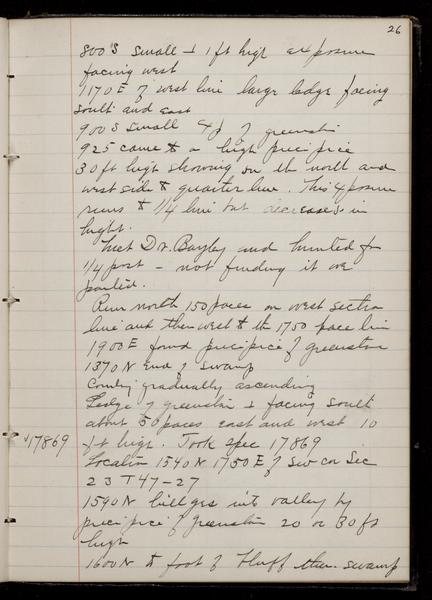 26
800 S small ⊥ 1 ft high exposure
facing west
1170 E of west line large ledge facing
south and east
900 S small exp of greenstn
925 came to a high precipice
30 ft high showing on the north and
west side to quarter line. This exposure
runs to 1/4 line but decreases in
hight.
Meet Dr. Bayley and hunted for
1/4 post - not finding it we
parted.
Run north 150 paces on west section
line and then west to the 1750 pace line
1900 E found precipice of greenston
1370 N End of swamp
Country gradually ascending
Ledge of greenston ⊥ facing south
about 50 paces east and west 10
√17869 ft high. Took spec 17869
Location 1540 N 1750 E of SW cor Sec
23 T 47-27
1590 N hill goes into valley by
precipice of greenston 20 or 30 ft
high
1600 N to foot of bluff then swamp